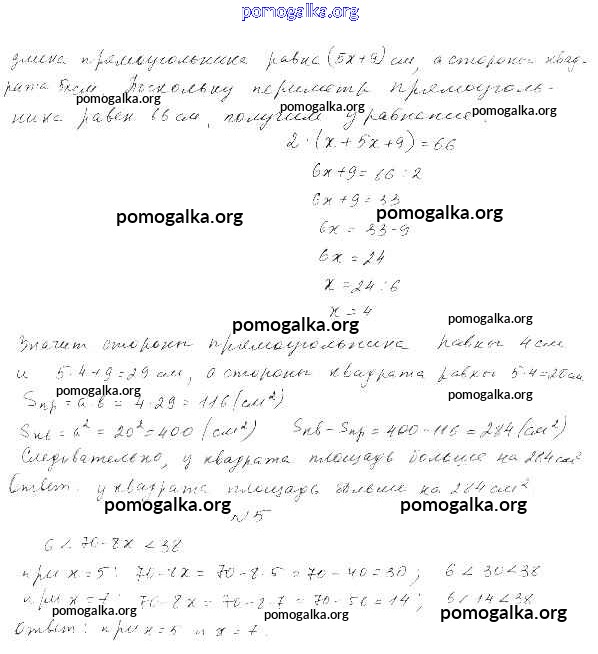 pomogalka.org
длина прямоугольника равна (5x+9) см, а стороны квад-
рата 5x см. Поскольку периметр прямоуголь-
pomogalka.org
pomogalka.org
pomogalka.org
ника равен 66 см, получим уравнение:
2·(x+5x+9)=66
6x+9=66:2
6x+9=33
pomogalka.org
pomogalka.org
6x=33-9
6x=24
x=24:6
x=4
pomogalka.org
pomogalka.org
Значит стороны прямоугольника равны 4 см
и 5·4+9=29 см, а стороны квадрата равны 5·4=20 см
pomogalka.org
pomogalka.org
Sпр=a·b=4·29=116 (см²)
Sкв=a²=20²=400 (см²) Sкв-Sпр=400-116=284 (см²)
Следовательно, у квадрата площадь больше на 284 см²
Ответ: у квадрата площадь больше на 284 см²
pomogalka.org
pomogalka.org
pomogalka.org
№5
6<70-8x<38
при x=5: 70-8x=70-8·5=70-40=30; 6<30<38
при x=7: 70-8x=70-8·7=70-56=14; 6<14<38
pomogalka.org
pomogalka.org
pomogalka.org
Ответ: при x=5 и x=7.